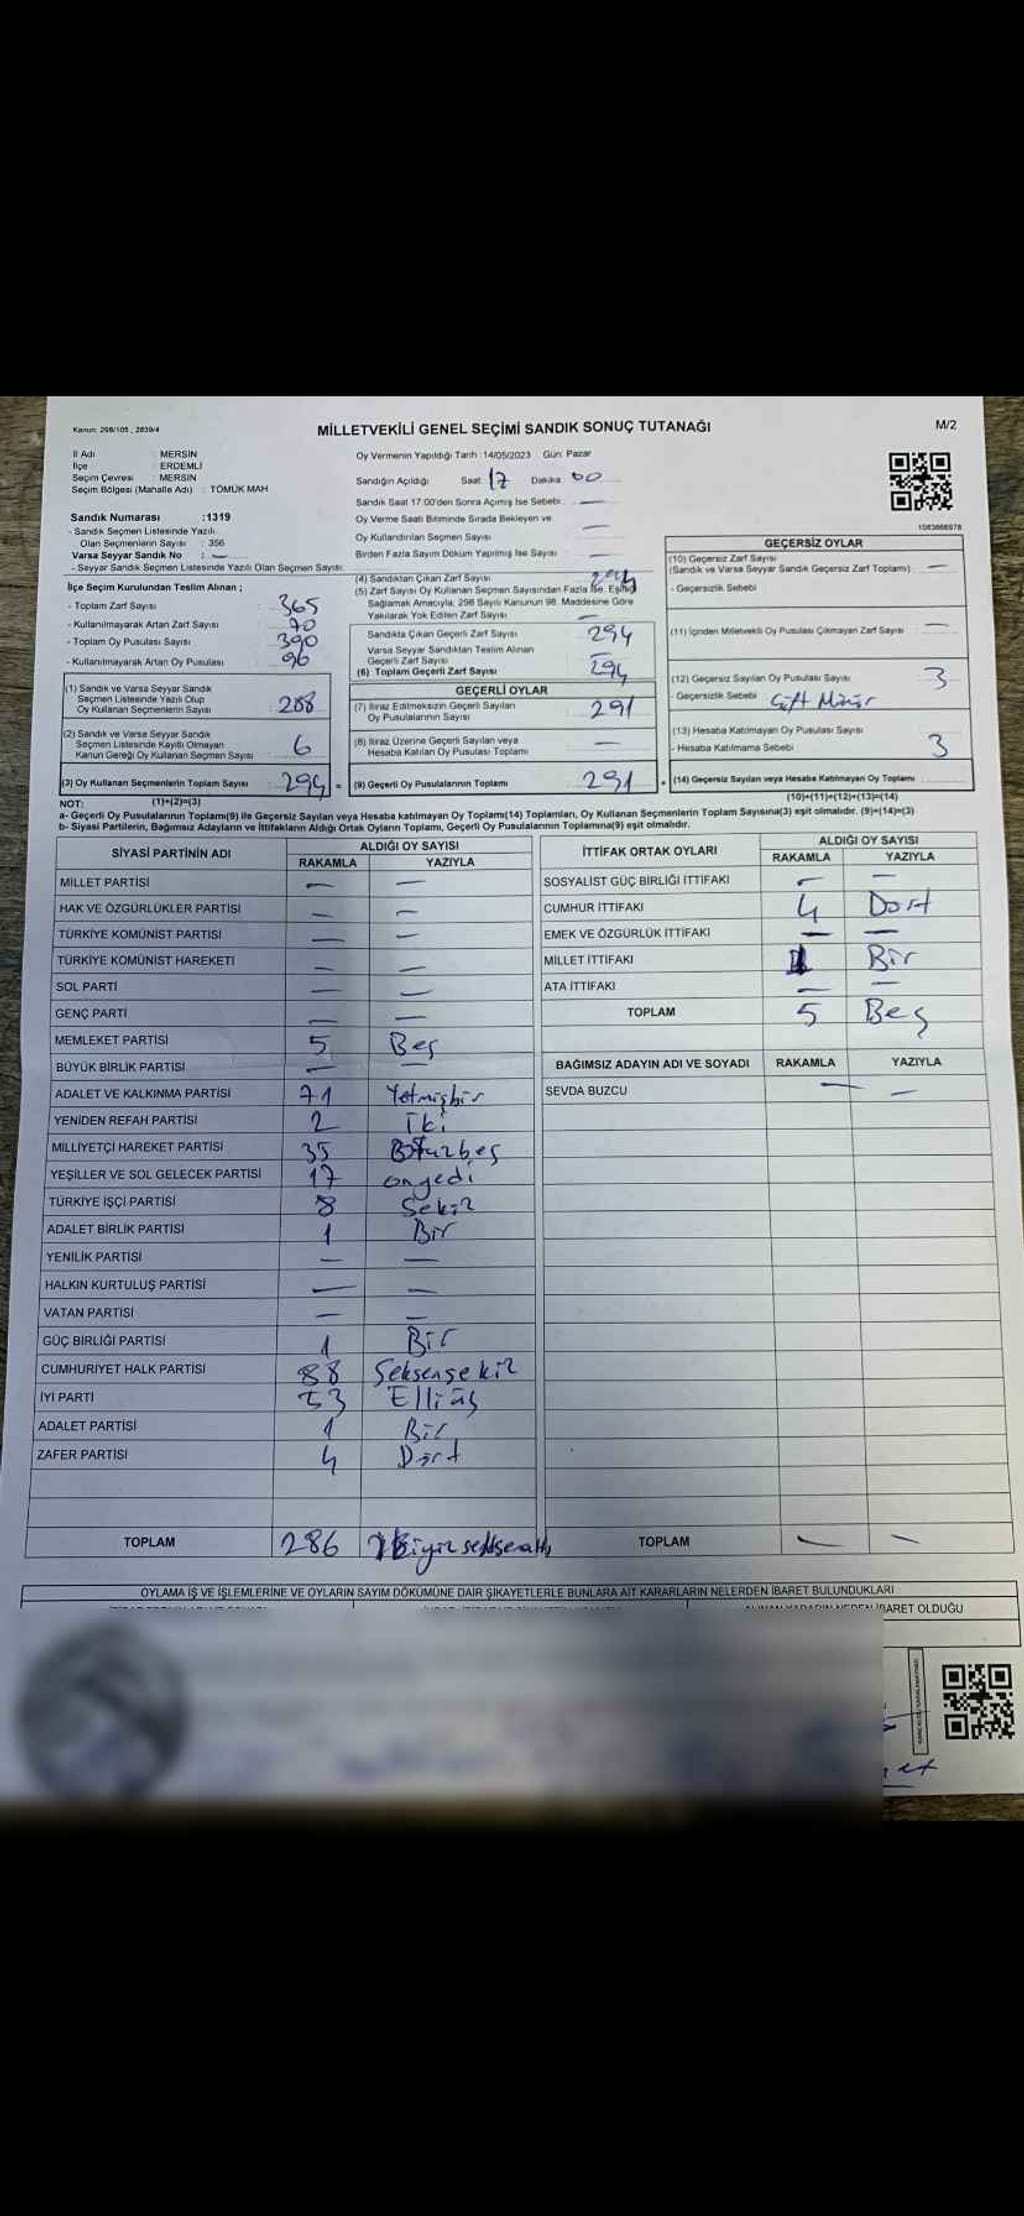 Kanun: 298/105 , 2839/4
MİLLETVEKİLİ GENEL SEÇİMİ SANDIK SONUÇ TUTANAĞI
M/2
İl Adı : MERSİN
İlçe : ERDEMLİ
Seçim Çevresi : MERSİN
Seçim Bölgesi (Mahalle Adı) : TÖMÜK MAH
Sandık Numarası :1319
- Sandık Seçmen Listesinde Yazılı
Olan Seçmenlerin Sayısı : 356
Varsa Seyyar Sandık No : —
- Seyyar Sandık Seçmen Listesinde Yazılı Olan Seçmen Sayısı:
Oy Vermenin Yapıldığı Tarih :14/05/2023 Gün: Pazar
Sandığın Açıldığı Saat: 17 Dakika: 00
Sandık Saat 17:00'den Sonra Açılmış İse Sebebi: —
Oy Verme Saati Bitiminde Sırada Bekleyen ve
Oy Kullandırılan Seçmen Sayısı —
Birden Fazla Sayım Döküm Yapılmış İse Sayısı : —
İlçe Seçim Kurulundan Teslim Alınan ;
- Toplam Zarf Sayısı : 365
- Kullanılmayarak Artan Zarf Sayısı : 70
- Toplam Oy Pusulası Sayısı : 390
- Kullanılmayarak Artan Oy Pusulası : 96
(1) Sandık ve Varsa Seyyar Sandık
Seçmen Listesinde Yazılı Olup
Oy Kullanan Seçmenlerin Sayısı : 288
(2) Sandık ve Varsa Seyyar Sandık
Seçmen Listesinde Kayıtlı Olmayan
Kanun Gereği Oy Kullanan Seçmen Sayısı : 6
(3) Oy Kullanan Seçmenlerin Toplam Sayısı : 294 =
(4) Sandıktan Çıkan Zarf Sayısı 294
(5) Zarf Sayısı Oy Kullanan Seçmen Sayısından Fazla İse, Eşitliği
Sağlamak Amacıyla, 298 Sayılı Kanunun 98. Maddesine Göre
Yakılarak Yok Edilen Zarf Sayısı —
Sandıkta Çıkan Geçerli Zarf Sayısı : 294
Varsa Seyyar Sandıktan Teslim Alınan
Geçerli Zarf Sayısı —
(6) Toplam Geçerli Zarf Sayısı 294
GEÇERLİ OYLAR
(7) İtiraz Edilmeksizin Geçerli Sayılan
Oy Pusulalarının Sayısı : 291
(8) İtiraz Üzerine Geçerli Sayılan veya
Hesaba Katılan Oy Pusulası Toplamı : —
(9) Geçerli Oy Pusulalarının Toplamı : 291 +
1083668978
GEÇERSİZ OYLAR
(10) Geçersiz Zarf Sayısı
(Sandık ve Varsa Seyyar Sandık Geçersiz Zarf Toplamı) : —
- Geçersizlik Sebebi
(11) İçinden Milletvekili Oy Pusulası Çıkmayan Zarf Sayısı : —
(12) Geçersiz Sayılan Oy Pusulası Sayısı : 3
- Geçersizlik Sebebi : Çift Mühür
(13) Hesaba Katılmayan Oy Pusulası Sayısı :
- Hesaba Katılmama Sebebi : 3
(14) Geçersiz Sayılan veya Hesaba Katılmayan Oy Toplamı
NOT: (1)+(2)=(3)
(10)+(11)+(12)+(13)=(14)
a- Geçerli Oy Pusulalarının Toplamı(9) ile Geçersiz Sayılan veya Hesaba katılmayan Oy Toplamı(14) Toplamları, Oy Kullanan Seçmenlerin Toplam Sayısına(3) eşit olmalıdır. (9)+(14)=(3)
b- Siyasi Partilerin, Bağımsız Adayların ve İttifakların Aldığı Ortak Oyların Toplamı, Geçerli Oy Pusulalarının Toplamına(9) eşit olmalıdır.
SİYASİ PARTİNİN ADI ALDIĞI OY SAYISI
RAKAMLA YAZIYLA
MİLLET PARTİSİ — —
HAK VE ÖZGÜRLÜKLER PARTİSİ — —
TÜRKİYE KOMÜNİST PARTİSİ — —
TÜRKİYE KOMÜNİST HAREKETİ — —
SOL PARTİ — —
GENÇ PARTİ — —
MEMLEKET PARTİSİ 5 Beş
BÜYÜK BİRLİK PARTİSİ — —
ADALET VE KALKINMA PARTİSİ 71 Yetmişbir
YENİDEN REFAH PARTİSİ 2 İki
MİLLİYETÇİ HAREKET PARTİSİ 35 Otuzbeş
YEŞİLLER VE SOL GELECEK PARTİSİ 17 onyedi
TÜRKİYE İŞÇİ PARTİSİ 8 Sekiz
ADALET BİRLİK PARTİSİ 1 Bir
YENİLİK PARTİSİ — —
HALKIN KURTULUŞ PARTİSİ — —
VATAN PARTİSİ — —
GÜÇ BİRLİĞİ PARTİSİ 1 Bir
CUMHURİYET HALK PARTİSİ 88 Seksensekiz
İYİ PARTİ 53 Elliüç
ADALET PARTİSİ 1 Bir
ZAFER PARTİSİ 4 Dört
TOPLAM 286 İkiyüz seksenaltı
İTTİFAK ORTAK OYLARI ALDIĞI OY SAYISI
RAKAMLA YAZIYLA
SOSYALİST GÜÇ BİRLİĞİ İTTİFAKI — —
CUMHUR İTTİFAKI 4 Dört
EMEK VE ÖZGÜRLÜK İTTİFAKI — —
MİLLET İTTİFAKI 1 Bir
ATA İTTİFAKI — —
TOPLAM 5 Beş
BAĞIMSIZ ADAYIN ADI VE SOYADI RAKAMLA YAZIYLA
SEVDA BUZCU — —
TOPLAM — —
OYLAMA İŞ VE İŞLEMLERİNE VE OYLARIN SAYIM DÖKÜMÜNE DAİR ŞİKAYETLERLE BUNLARA AİT KARARLARIN NELERDEN İBARET BULUNDUKLARI
ALINAN KARARIN NEDEN İBARET OLDUĞU